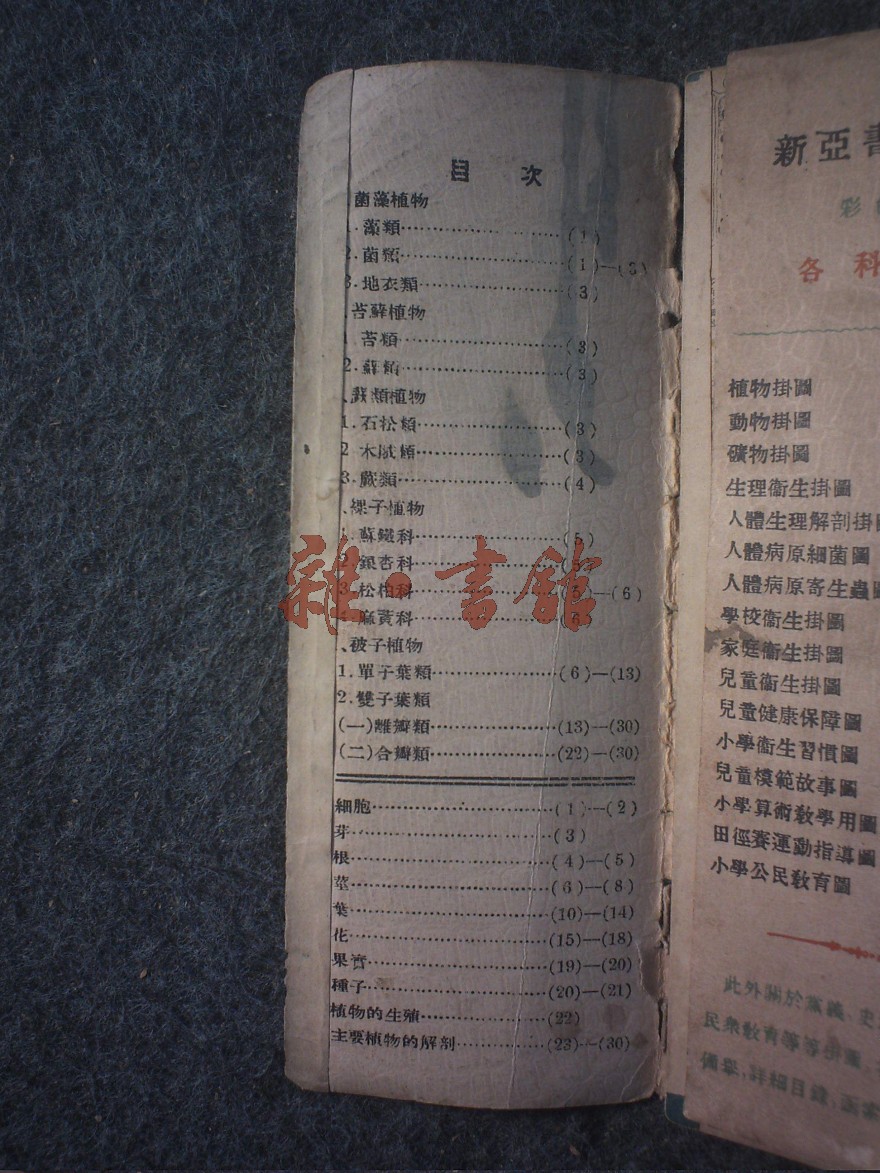 目 次
菌藻植物
1.藻類……(1)
2.菌類……(1)—(3)
3.地衣類……(3)
苔蘚植物
1 苔類……(3)
2.蘚類……(3)
、蕨類植物
1.石松類……(3)
2 木賊類……(3)
3.蕨類……(4)
、裸子植物
1.蘇鐵科……(5)
2.銀杏科……(5)
3.松柏科……(5)—(6)
4.麻黃科……(6)
、被子植物
1.單子葉類……(6)—(13)
2.雙子葉類
(一)離瓣類……(13)—(30)
(二)合瓣類……(22)—(30)
細胞……(1)—(2)
芽……(3)
根……(4)—(5)
莖……(6)—(8)
葉……(10)—(14)
花……(15)—(18)
果實……(19)—(20)
種子……(20)—(21)
植物的生殖……(22)
主要植物的解剖……(23)—(30)
雜·書館
新亞書
彩
各科
植物掛圖
動物掛圖
礦物掛圖
生理衞生掛圖
人體生理解剖掛圖
人體病原細菌圖
人體病原寄生蟲圖
學校衞生掛圖
家庭衞生掛圖
兒童衞生掛圖
兒童健康保障圖
小學衞生習慣圖
兒童模範故事圖
小學算術敎學用圖
田徑賽運動指導圖
小學公民敎育圖
此外關於黨義、史
民衆敎育等等掛圖
備舉,詳細目錄,函索